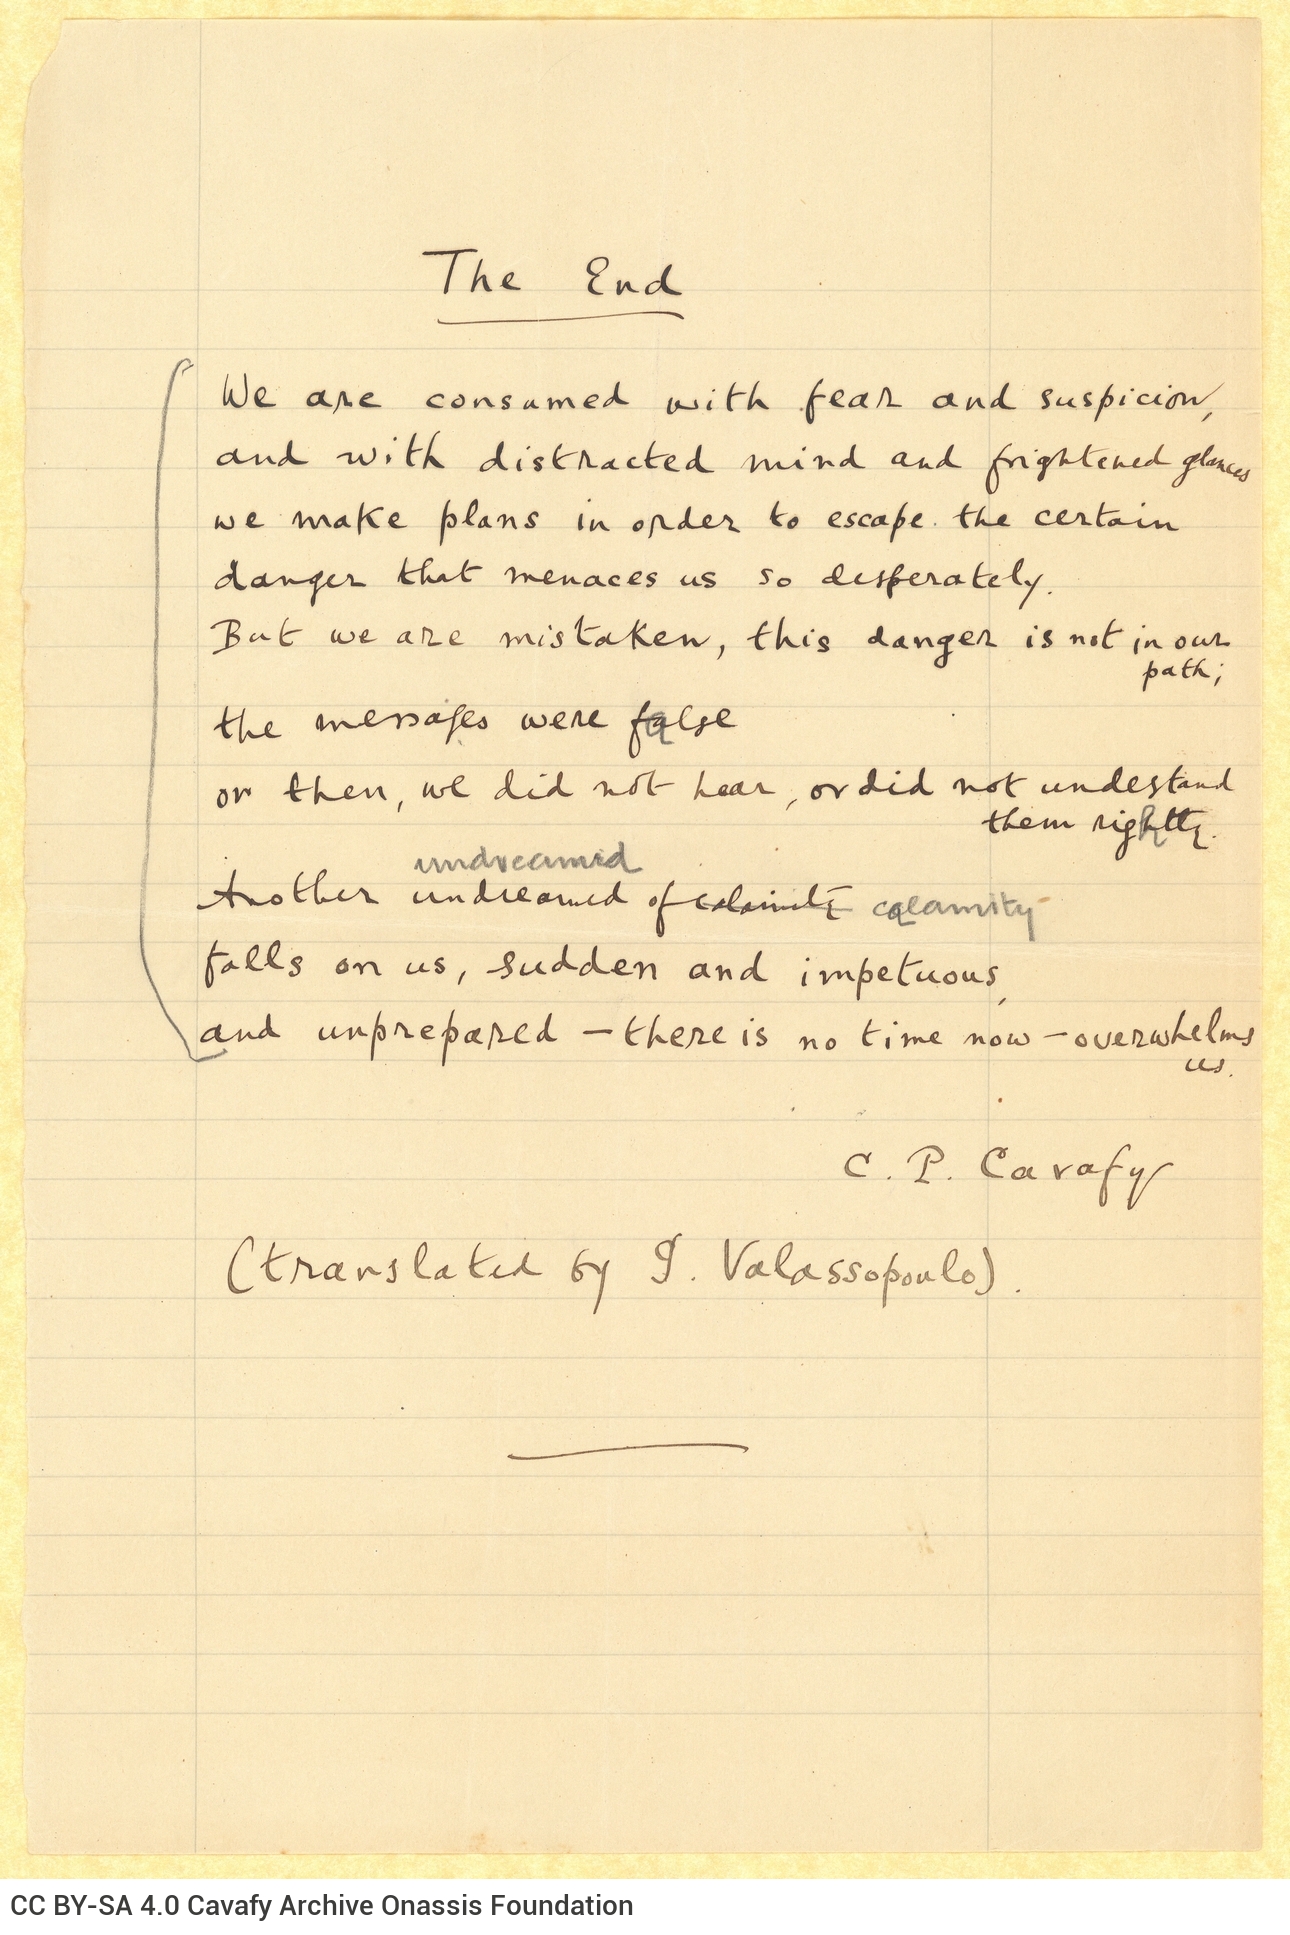 The End
We are consumed with fear and suspicion,
and with distracted mind and frightened glances
we make plans in order to escape the certain
danger that menaces us so desperately.
But we are mistaken, this danger is not in our
path;
the messages were false
or then, we did not hear, or did not undestand
them rightly.
undreamed
Another undreamed of calamity calamity
falls on us, sudden and impetuous,
and unprepared – there is no time now – overwhelms
us.
C. P. Cavafy
(translated by G. Valassopoulo).
CC BY-SA 4.0 Cavafy Archive Onassis Foundation